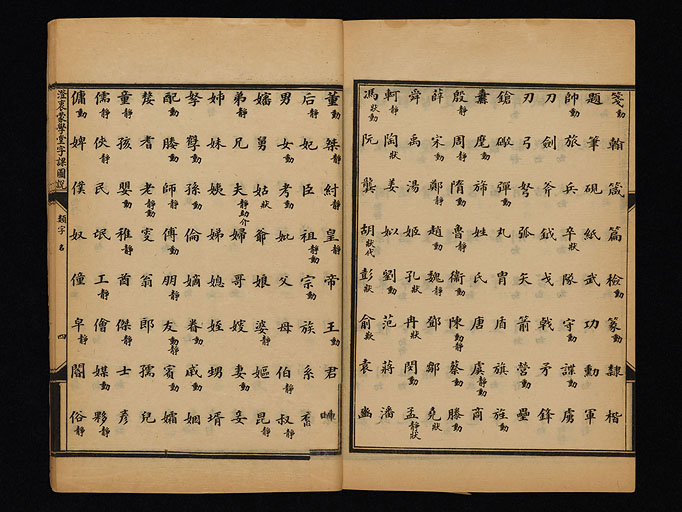 箋動 翰 箴 篇 檢動 篆動 隸 楷
題 筆 硯 紙 武 功 勳 軍
帥動 旅 兵 卒狀 隊 守動 諜動 虜
刀 劍 斧 鉞 戈 戟 矛 鋒
刃 弓 弩 弧 矢 箭 營動 壘
鎗 礮 彈動 丸 冑 盾 旗 旌動
纛 麾動 旆 姓 氏 唐 虞靜動 商
殷靜 周靜 隋動 曹靜 衞動 陳動靜 蔡動 滕動
薛 宋動 鄭靜 趙動 魏靜 鄧 鄒 堯狀
舜 禹 湯 姬 孔狀 冉狀 閔動 孟靜狀
軻靜 陶狀 姜 姒 劉動 范 蔣 潘
馮狀動 阮 龔 胡狀代 彭狀 俞狀 袁 幽
董動 桀靜 紂靜 皇靜 帝 王動 君
后靜 妃 臣 祖靜動 宗動 族 系
男 女動 考動 妣 父 母 伯靜 叔靜
嬸 舅 姑狀 爺 娘 婆靜 嫗 昆靜
弟靜 兄 夫靜助介 婦 哥 嫂 妻動 妾
姊 妹 姨 娣 媳 姪 甥 壻
孥 孿動 孫動 倫 嫡 眷動 戚動 姻
配動 媵動 師靜 傅動 朋靜 友動靜 賓動 孀
嫠 耆 老靜動 叟 翁 郎 孺 兒
童靜 孩 嬰動 稚靜 酋 傑靜 士 彥
儒靜 俠靜 民 氓 工靜 儈 媒動 夥靜
傭動 婢 僕 奴 僮 皁靜 閽 俗靜
澄衷蒙學堂字課圖說
類字 名
四